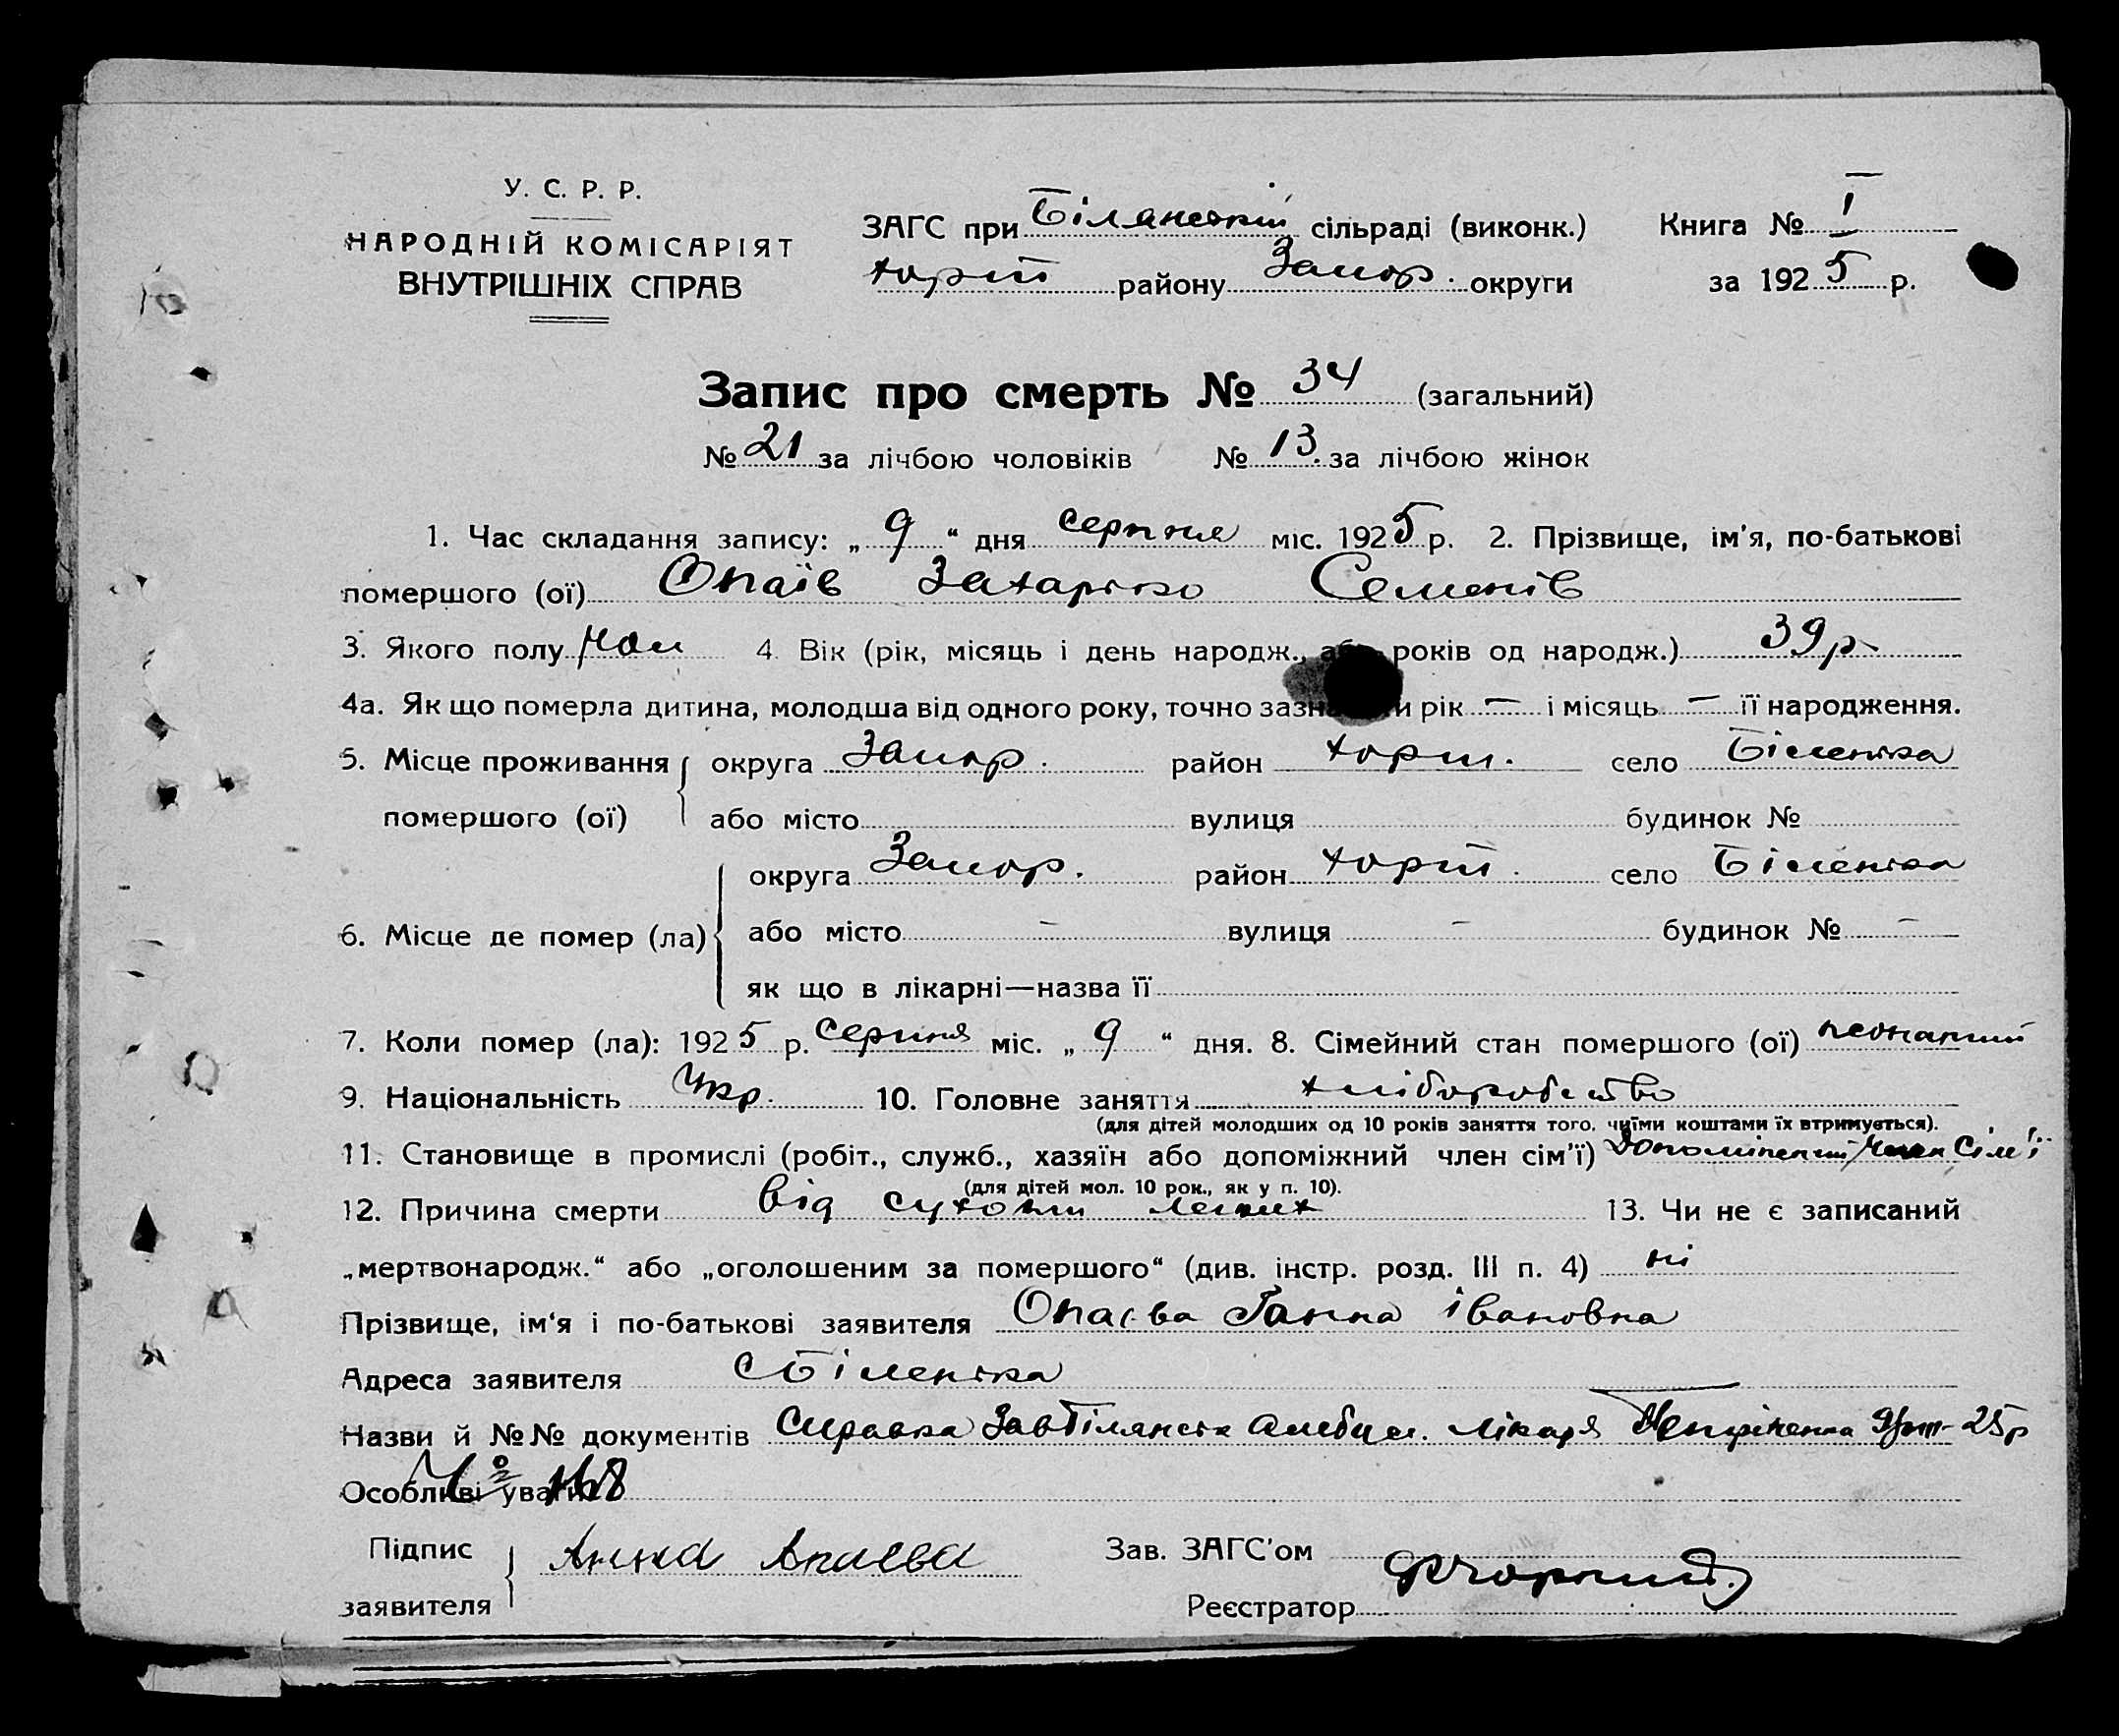 У. С. Р. Р.
НАРОДНІЙ КОМІСАРІЯТ
ВНУТРІШНІХ СПРАВ
ЗАГС при Білянській сільраді (виконк.) Книга № I
Хорт району Запор. округи за 1925 р.
Запис про смерть № 34 (загальний)
№ 21 за лічбою чоловіків № 13. за лічбою жінок
1. Час складання запису: „9“ дня серпня міс. 1925 р. 2. Прізвище, ім'я, по-батькові
помершого (ої) Опаїв Захарко Семенів
3. Якого полу чол 4. Вік (рік, місяць і день народж., або років од народж.) 39 р.
4а. Як що померла дитина, молодша від одного року, точно зазн и рік — і місяць — її народження.
5. Місце проживання округа Запор. район Хорт. село Біленька
помершого (ої) або місто вулиця будинок №
округа Запор. район Хорт. село Біленька
6. Місце де помер (ла) або місто – вулиця – будинок № –
як що в лікарні—назва її
7. Коли помер (ла): 1925 р. серпня міс. „9“ дня. 8. Сімейний стан помершого (ої) жонатий
9. Національність Укр. 10. Головне заняття хліборобство
(для дітей молодших од 10 років заняття того, чиїми коштами їх втримується).
11. Становище в промислі (робіт., служб., хазяїн або допоміжний член сім'ї) допоміжний член сім'ї
(для дітей мол. 10 рок., як у п. 10).
12. Причина смерти від сухоти легких 13. Чи не є записаний
„мертвонародж.“ або „оголошеним за помершого“ (див. інстр. розд. III п. 4) ні
Прізвище, ім'я і по-батькові заявителя Опаєва Ганна Івановна
Адреса заявителя с Біленька
Назви й №№ документів Справка Зав Білянськ амбул. лікаря 25 р
Особливі уваги № 168
Підпис Анна Апаева Зав. ЗАГС'ом
заявителя Реєстратор